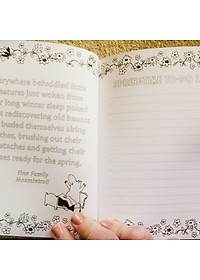 everywhere befuddled little
creatures just woken from
their long winter sleep poked
about rediscovering old haunts
and busied themselves airing
clothes, brushing out their
moustaches and getting their
houses ready for the spring.
Finn Family
Moomintroll
SPRINGTIME TO-DO L